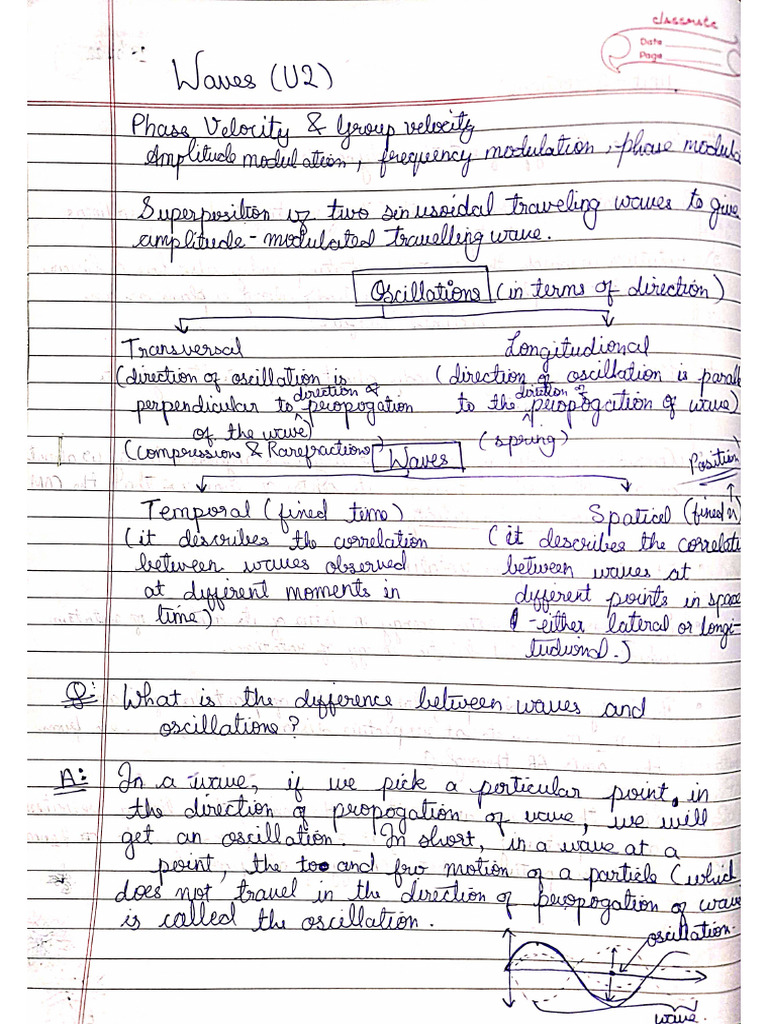 classmate
Date
Page
Waves (U2)
Phase Velocity & Group velocity
Amplitude modulation, frequency modulation, phase modula
Superposition of two sinusoidal traveling waves to give
amplitude-modulated travelling wave.
Oscillations (in terms of direction)
Transversal
(direction of oscillation is
perpendicular to direction of peopogation
of the wave)
(compressions & Rarefractions)
Longitudional
(direction of oscillation is parall
to the direction of peopogation of wave)
(spring)
Waves
Position
Temporal (fined time)
(it describes the correlation
between waves observed
at different moments in
time)
Spatical (fined x)
(it describes the correlati
between waves at
different points in space
-either lateral or longi-
tudional.)
Q: What is the difference between waves and
oscillations?
A: In a wave, if we pick a perticular point, in
the direction of propogation of wave, we will
get an oscillation. In short, in a wave at a
point, the too and fro motion of a particle (which
does not travel in the direction of peopogation of wave
is called the oscillation.
oscillation.
wave.